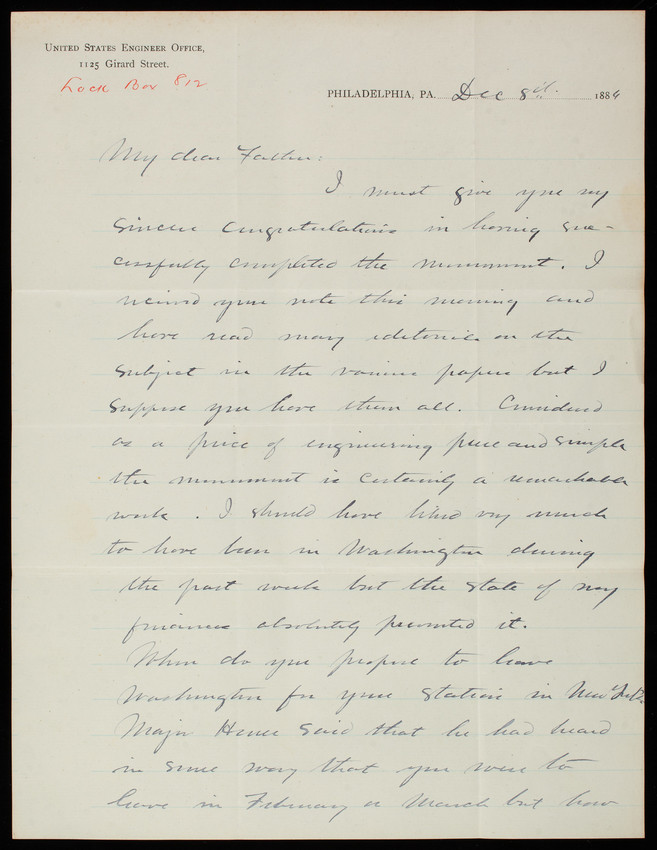 UNITED STATES ENGINEER OFFICE,
1125 Girard Street.
Lock Box 812
PHILADELPHIA, PA. Dec 8th. 1884
My dear Father:
I must give you my
sincere congratulations in having suc-
cessfully completed the monument. I
received your note this morning and
have read many editorials on the
subject in the various papers but I
suppose you have them all. Considered
as a piece of engineering pure and simple
the monument is certainly a remarkable
work. I should have liked very much
to have been in Washington during
the past week but the state of my
finances absolutely prevented it.
When do you propose to leave
Washington for your station in New
Major Heuer said that he had heard
in some way that you were to
leave in February or March but how